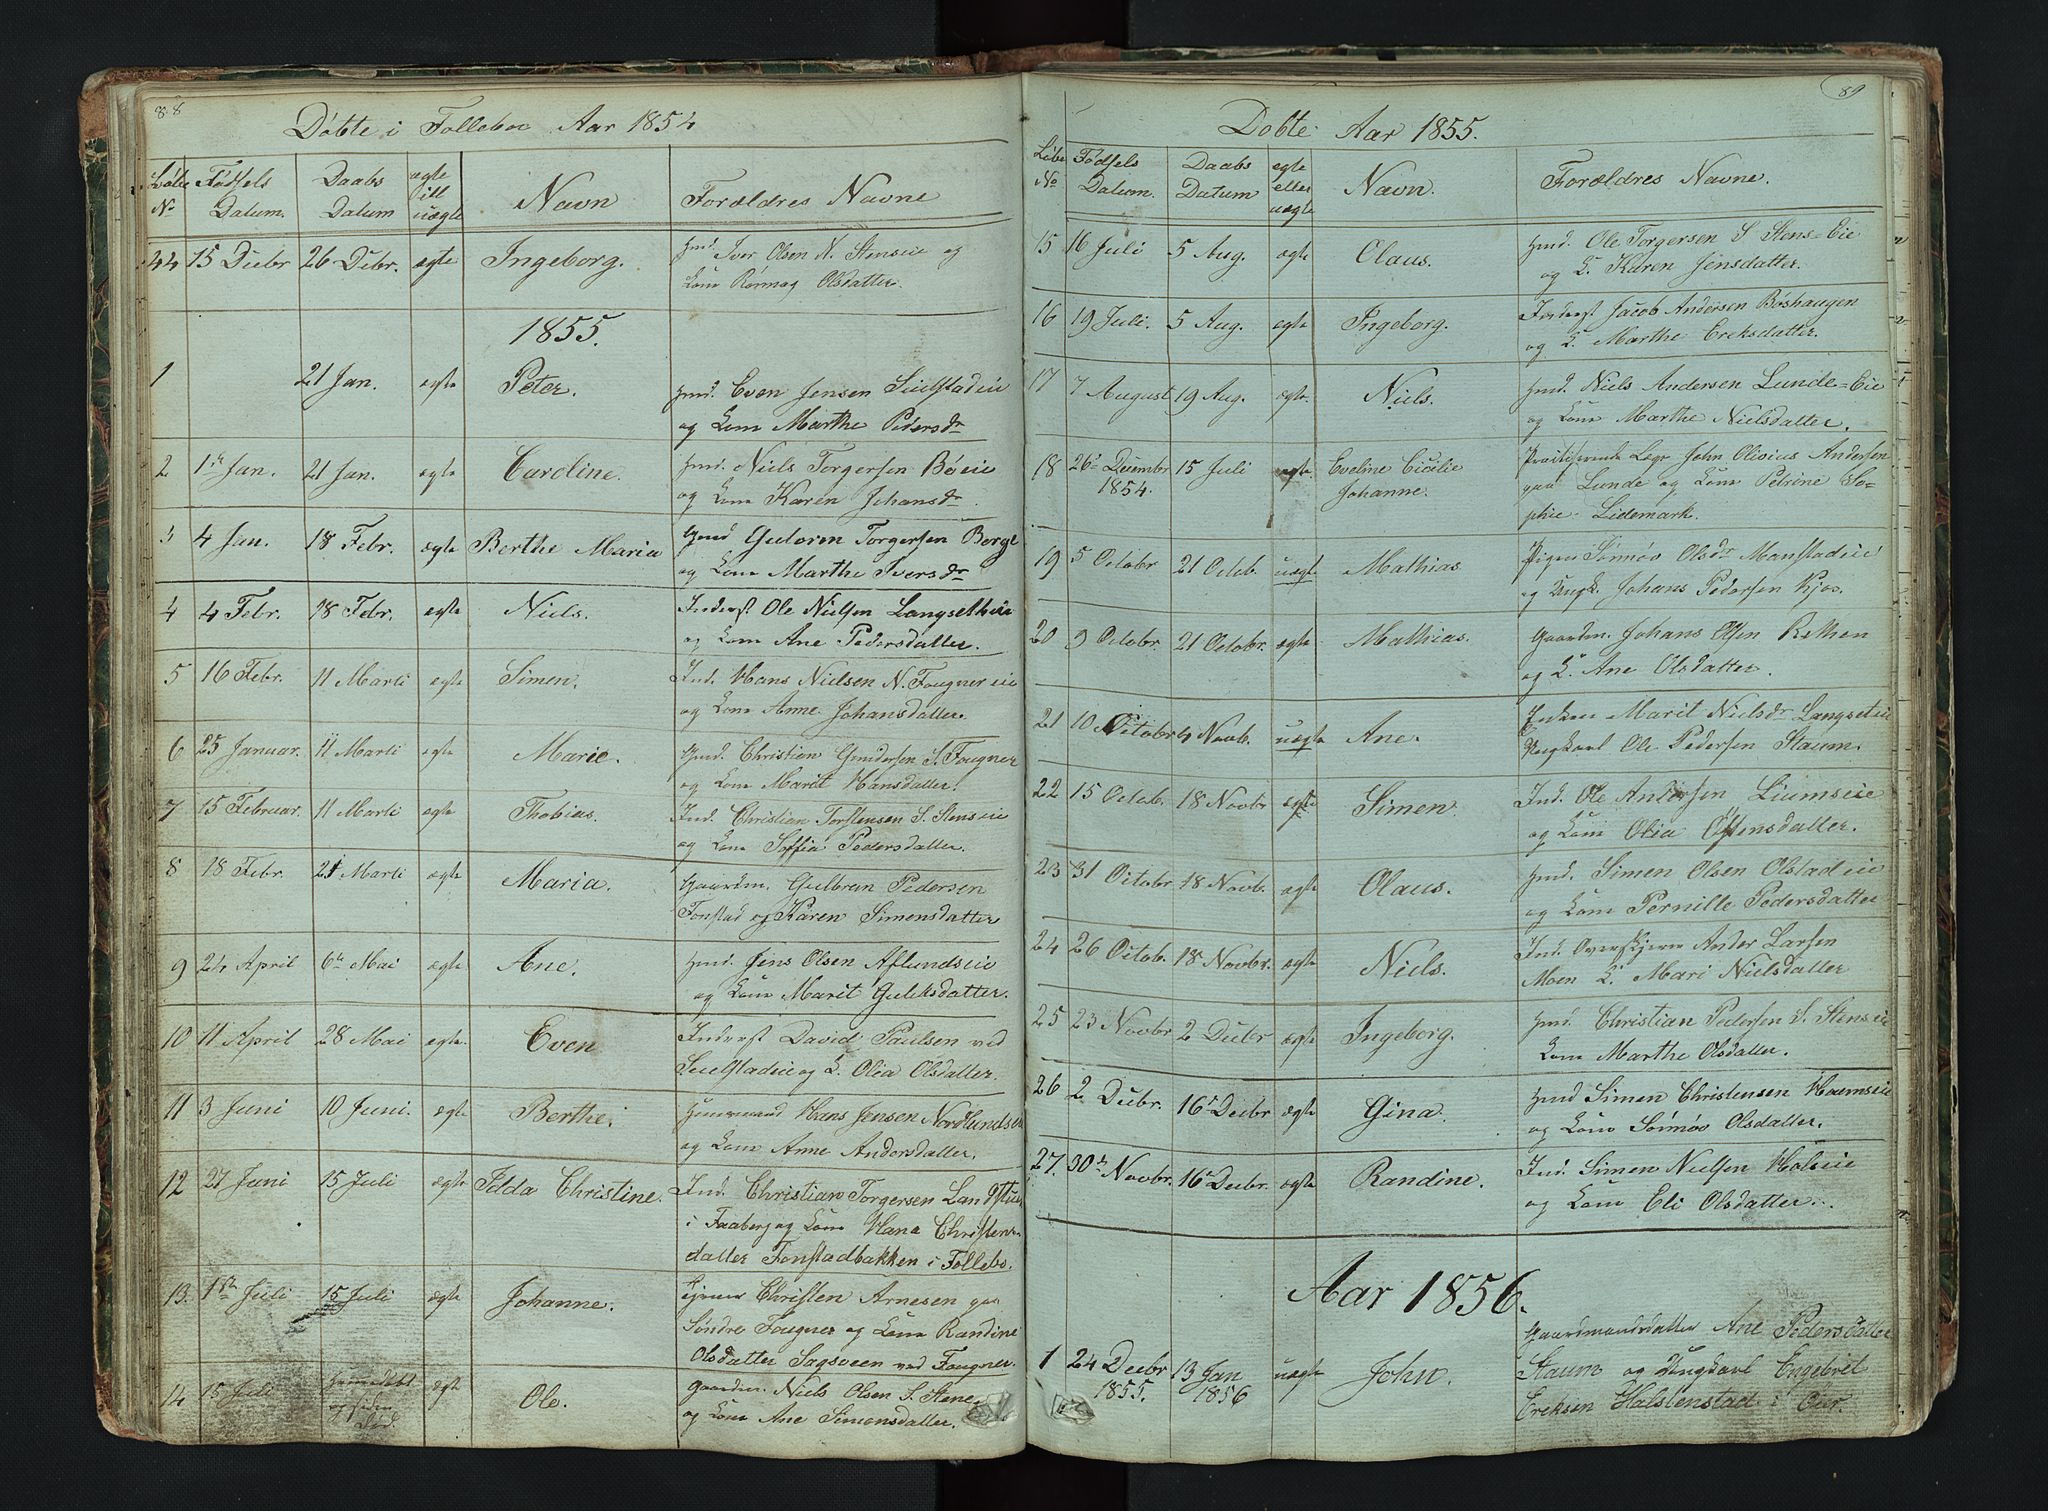 88
Döbte i Folleboe Aar 1854
Löbe Födsels Daabs ægte
No Datum. Datum ell uægte Navn Forældres Navne
44 15 Decbr 26 Debr. ægte Ingeborg. Hmd. Iver Olsen N. Stenseie og
Kone Rønnog Olsdatter.
1855.
1 21 Jan. ægte Peter. Hmd. Even Jensen Seielstadeie
og Kone Marthe Pedersdr
2 1ste Jan. 21 Jan. ægte Caroline. Hmd. Niels Torgersen Böeie
og Kone Karen Johansdr
3 4 Jan. 18 Febr. ægte Berthe Maria Hmd Guttorm Torgersen Berge
og Kone Marthe Iversdr
4 4 Febr. 18 Febr. ægte Niels. Inderst Ole Nielsen Langsetheie
og Kone Ane Pedersdatter.
5 16 Febr. 11 Marti ægte Simen. Ind. Hans Nielsen N. Fougner eie
og Kone Anne Johansdatter.
6 25 Januar. 11 Marti ægte Marie. Hmd. Christian Gundersen S. Fougner
og Kone Marit Hansdatter.
7 15 Februar. 11 Marti ægte Thobias. Ind. Christian Torstensen S. Stenseie
og Kone Soffia Pedersdatter.
8 18 Febr. 21 Marti ægte Maria. Gaardm. Gulbran Pedersen
Fonstad og Karen Simensdatter
9 24 April 6te Mai ægte Ane. Hmd. Jens Olsen Aflundseie
og Kone Marit Guleksdatter.
10 11 April 28 Mai ægte. Even Inderst David Paulsen ved
Seielstadeie og K. Olea Olsdatter.
11 3 Juni 10 Juni. ægte Berthe. Huusmand Hans Jensen Nordlundse
og Kone Anne Andersdatter.
12 27 Juni 15 Juli ægte Idda Christine. Ind. Christian Torgersen Langstu
i Faaberg og Kone Hana Christens-
datter Fonstadbakken i Follebo.
13. 1ste Juli 15 Juli ægte Johanne. Christen Arnesen paa
Söndre Fougner og Kone Randine
Olsdatter Sagsveen ved Fougner.
14 15 Juli hjemedöbt
og siden
död. ægt Ole. Gaardm. Niels Olsen S. Stene
og Kone Ane Simonsdatter.
89
Döbte Aar 1855.
Löbe Födsels Daabs ægte
No Datum. Datum eller uægte Navn. Forældres Navne.
15 16 Juli 5 Aug. ægte Claus. Hmd. Ole Torgersen S Stens-Eie
og K. Karen Jensdatter.
16 19 Juli. 5 Aug. ægte Ingeborg. Inderst Jacob Andersen Böshaugen
og K. Marthe Ereksdatter.
17 7 August 19 Aug. ægte. Niels. Hmd. Niels Andersen Lunde-Eie
og Kone Marthe Nielsdatter.
18 26de Decembr
1854. 15 Juli ægte. Eveline Cicilie
Johanne. Practiserende Læge John Olivius Andersen
paa Lunde og Kone Petrine So-
phie Lidemark.
19 5 Octobr 21 Octob. uægte Mathias Pigen Rønnøv Olsdr Manstadeie
og Ungk. Johans Pedersen Kjos.
20 9 Octobr. 21 Octobr. ægte Mathias. Gaardm. Johans Olsen Rethen
og K. Ane Olsdatter.
21 10 Octobr 4 Novb. uægte Ane. Marit Nielsdr Langseteie
Ungkarl Ole Pedersen Staum.
22 15 Octob. 18 Novbr ægte Simen. Ind. Ole Andersen Liumseie
og Kone Olia Östensdatter.
23 31 Octobr 18 Novb. ægte Olaus. Hmd. Simen Olsen Olstadeie
og Kone Pernille Pedersdatter
24 26 Octob. 18 Novbr. ægte Niels. Ind. Overskjærer Ander Larsen
Moen K. Mari Nielsdatter
25 23 Novbr 2 Decbr ægte Ingeborg. Hmd. Christian Pedersen S. Stenseie
Kone Marthe Olsdatter.
26 2 Decbr. 16de Decbr ægte Gina. Hmd Simen Christensen Haemseie
og Kone Rønnøv Olsdatter.
27. 30te Novbr. 16de Decbr. ægte Randine. Ind. Simen Nielsen Holseie
og Kone Eli Olsdatter.
Aar 1856.
1 24 Decbr
1855. 13 Jan
1856 uægte John. Gaardmandsdatter Ane Pedersdatter
Staum og Ungkarl Engebret
Ereksen Halstenstad i Öier.